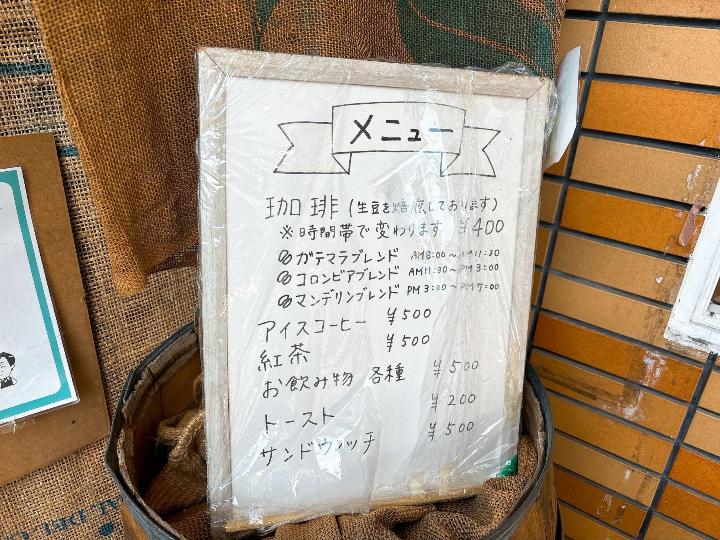 メニュー
珈琲(生豆を焙煎しております)
※時間帯で変わります ¥400
ガテマラブレンド AM8:00〜AM11:30
コロンビアブレンド AM11:30〜PM3:00
マンデリンブレンド PM3:00〜PM7:00
アイスコーヒー ¥500
紅茶 ¥500
お飲み物 各種 ¥500
トースト ¥200
サンドウィッチ ¥500